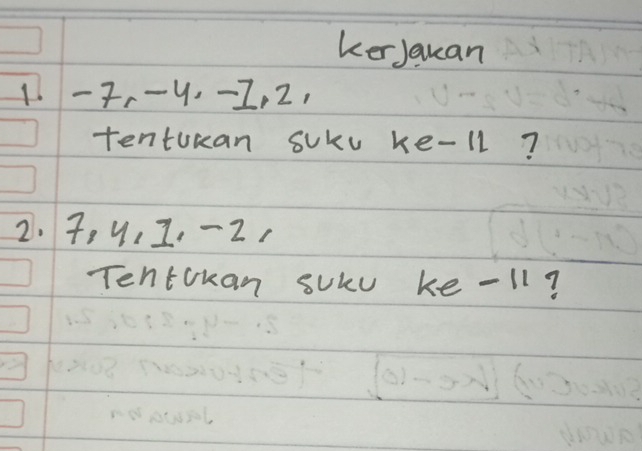 Kerjakan
1. -7, -4, -1, 2,
Tentukan suku ke-11 ?
2. 7, 4, 1, -2,
Tentukan suku ke-11?